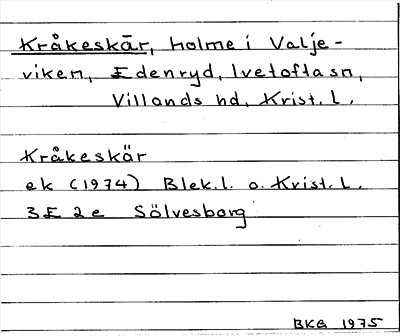 Kråkeskär, holme i Valje-
viken, Edenryd, Ivetofta sn,
Villands hd, Krist. l.
Kråkeskär
ek (1974) Blek. l. o. Krist. L.
3E 2e Sölvesborg
BKG 1975